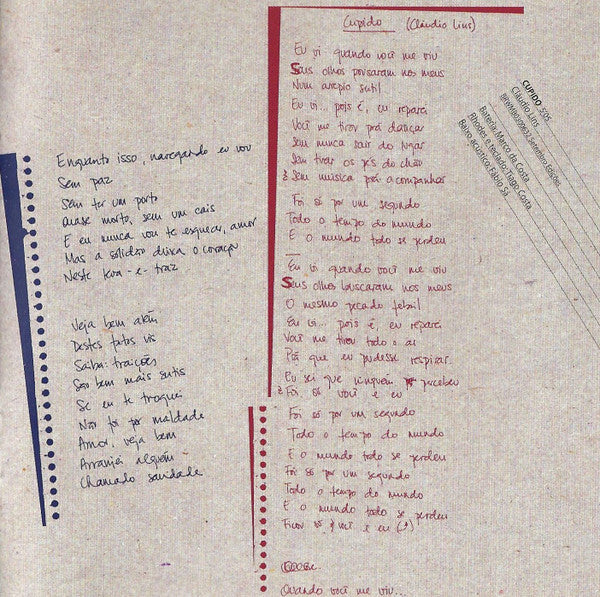 Enquanto isso, navegando eu vou
Sem paz
Sem ter um porto
Quase morto, sem um cais
E eu nunca vou te esquecer, amor
Mas a solidão deixa o coração
Neste leva-e-traz
Veja bem além
Destes fatos vis
Saiba: traições
São bem mais sutis
Se eu te troquei
Não foi por maldade
Amor, veja bem
Arranjei alguém
Chamado saudade
Cupido (Cláudio Lins)
Eu vi quando você me viu
Seus olhos pousaram nos meus
Num arrepio sutil
Eu vi... pois é, eu reparei
Você me tirou pra dançar
Sem nunca sair do lugar
Sem tirar os pés do chão
Sem música pra acompanhar
Foi só por um segundo
Todo o tempo do mundo
E o mundo todo se perdeu
Eu vi quando você me viu
Seus olhos buscaram nos meus
O mesmo pecado febril
Eu vi... pois é, eu reparei
Você me tirou todo o ar
Pra que eu pudesse respirar
Eu sei que ninguém percebeu
Foi só você e eu
Foi só por um segundo
Todo o tempo do mundo
E o mundo todo se perdeu
Foi só por um segundo
Todo o tempo do mundo
E o mundo todo se perdeu
Ficou só você e eu
Quando você me viu...
CUPIDO 5:05
Cláudio Lins
Bateria: Marco da Costa
Rhodes e teclado: Tiago Costa
Baixo acústico: Fábio Sá